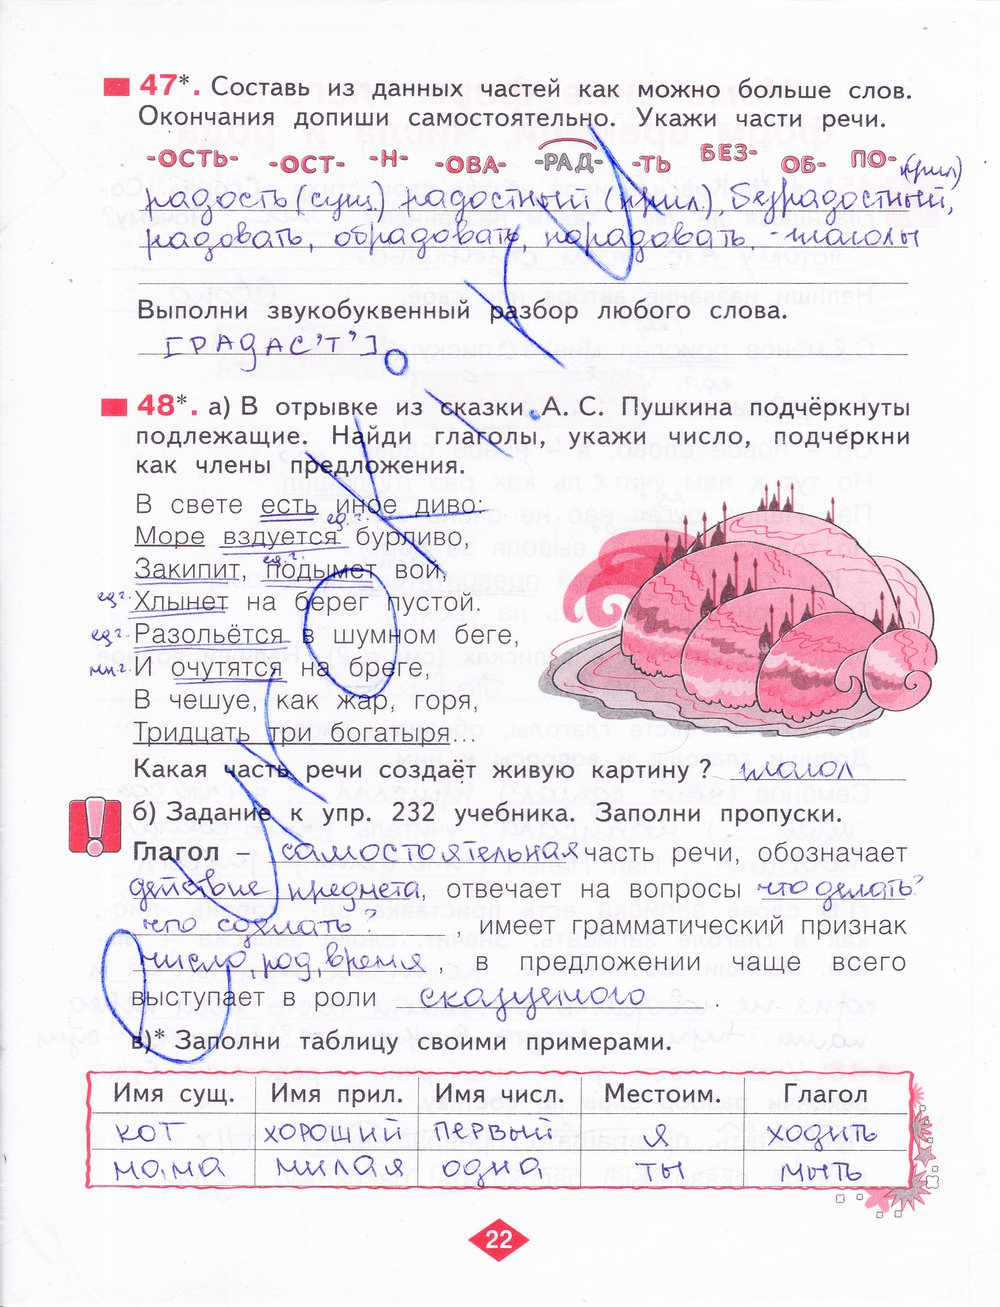 47*. Составь из данных частей как можно больше слов.
Окончания допиши самостоятельно. Укажи части речи.
-ОСТЬ- -ОСТ- -Н- -ОВА- -РАД- -ТЬ БЕЗ- ОБ- ПО- (прил)
радость (сущ) радостный (прил) Безрадостный,
радовать, обрадовать, порадовать, - глаголы
Выполни звукобуквенный разбор любого слова.
[РАДАС'Т']
48*. а) В отрывке из сказки А. С. Пушкина подчёркнуты
подлежащие. Найди глаголы, укажи число, подчеркни
как члены предложения.
В свете есть иное диво:
ед.ч.
Море вздуется бурливо,
ед.ч.
Закипит, подымет вой,
ед.ч. Хлынет на берег пустой.
ед.ч. Разольётся в шумном беге,
мн.ч. И очутятся на бреге,
В чешуе, как жар, горя,
Тридцать три богатыря...
Какая часть речи создаёт живую картину? глагол
б) Задание к упр. 232 учебника. Заполни пропуски.
Глагол – самостоятельная часть речи, обозначает
действие предмета, отвечает на вопросы что делать?
что сделать? , имеет грамматический признак
число, род, время, в предложении чаще всего
выступает в роли сказуемого .
в)* Заполни таблицу своими примерами.
Имя сущ. Имя прил. Имя числ. Местоим. Глагол
кот хороший первый я ходить
мама милая одна ты мыть
22